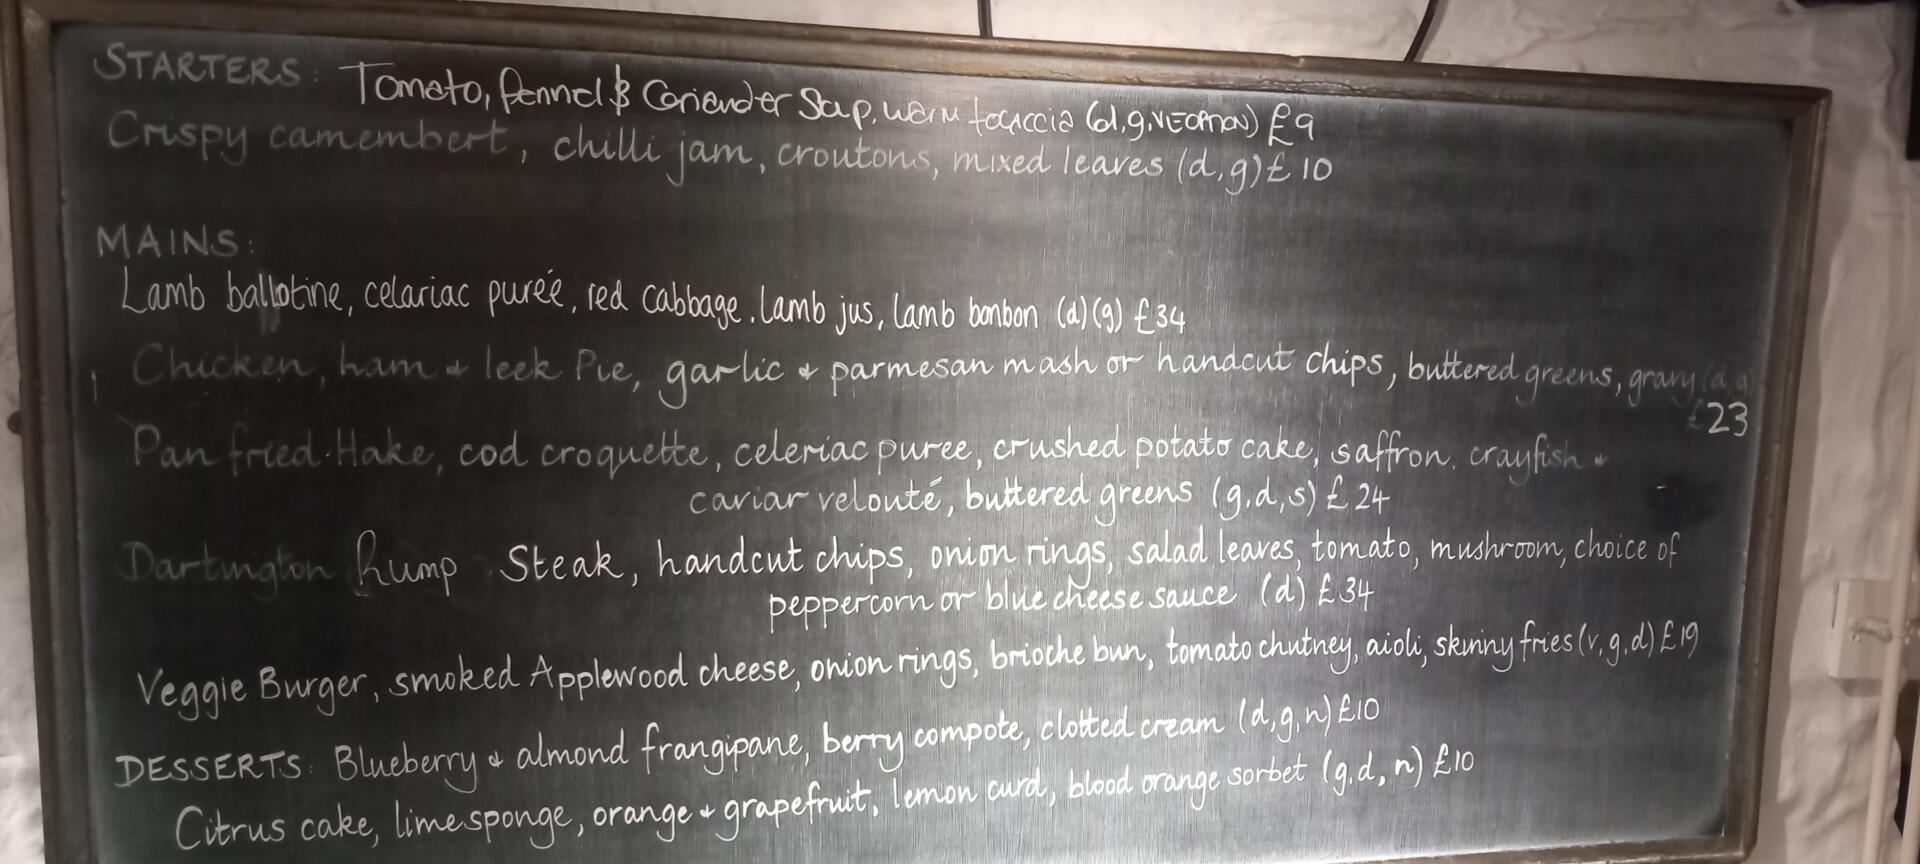 STARTERS: Tomato, fennel & Coriander Soup, warm focaccia (d,g,VEOPTION) £9
Crispy camembert, chilli jam, croutons, mixed leaves (d,g) £10
MAINS:
Lamb ballotine, celariac puréé, red cabbage, lamb jus, lamb bonbon (d)(g) £34
Chicken, ham & leek Pie, garlic & parmesan mash or handcut chips, buttered greens, gravy (d,g)
£23
Pan fried Hake, cod croquette, celeriac puree, crushed potato cake, saffron, crayfish &
caviar velouté, buttered greens (g,d,s) £24
Dartington Rump Steak, handcut chips, onion rings, salad leaves, tomato, mushroom, choice of
peppercorn or blue cheese sauce (d) £34
Veggie Burger, smoked Applewood cheese, onion rings, brioche bun, tomato chutney, aioli, skinny fries (v,g,d) £19
DESSERTS: Blueberry & almond frangipane, berry compote, clotted cream (d,g,n) £10
Citrus cake, lime sponge, orange & grapefruit, lemon curd, blood orange sorbet (g,d,n) £10